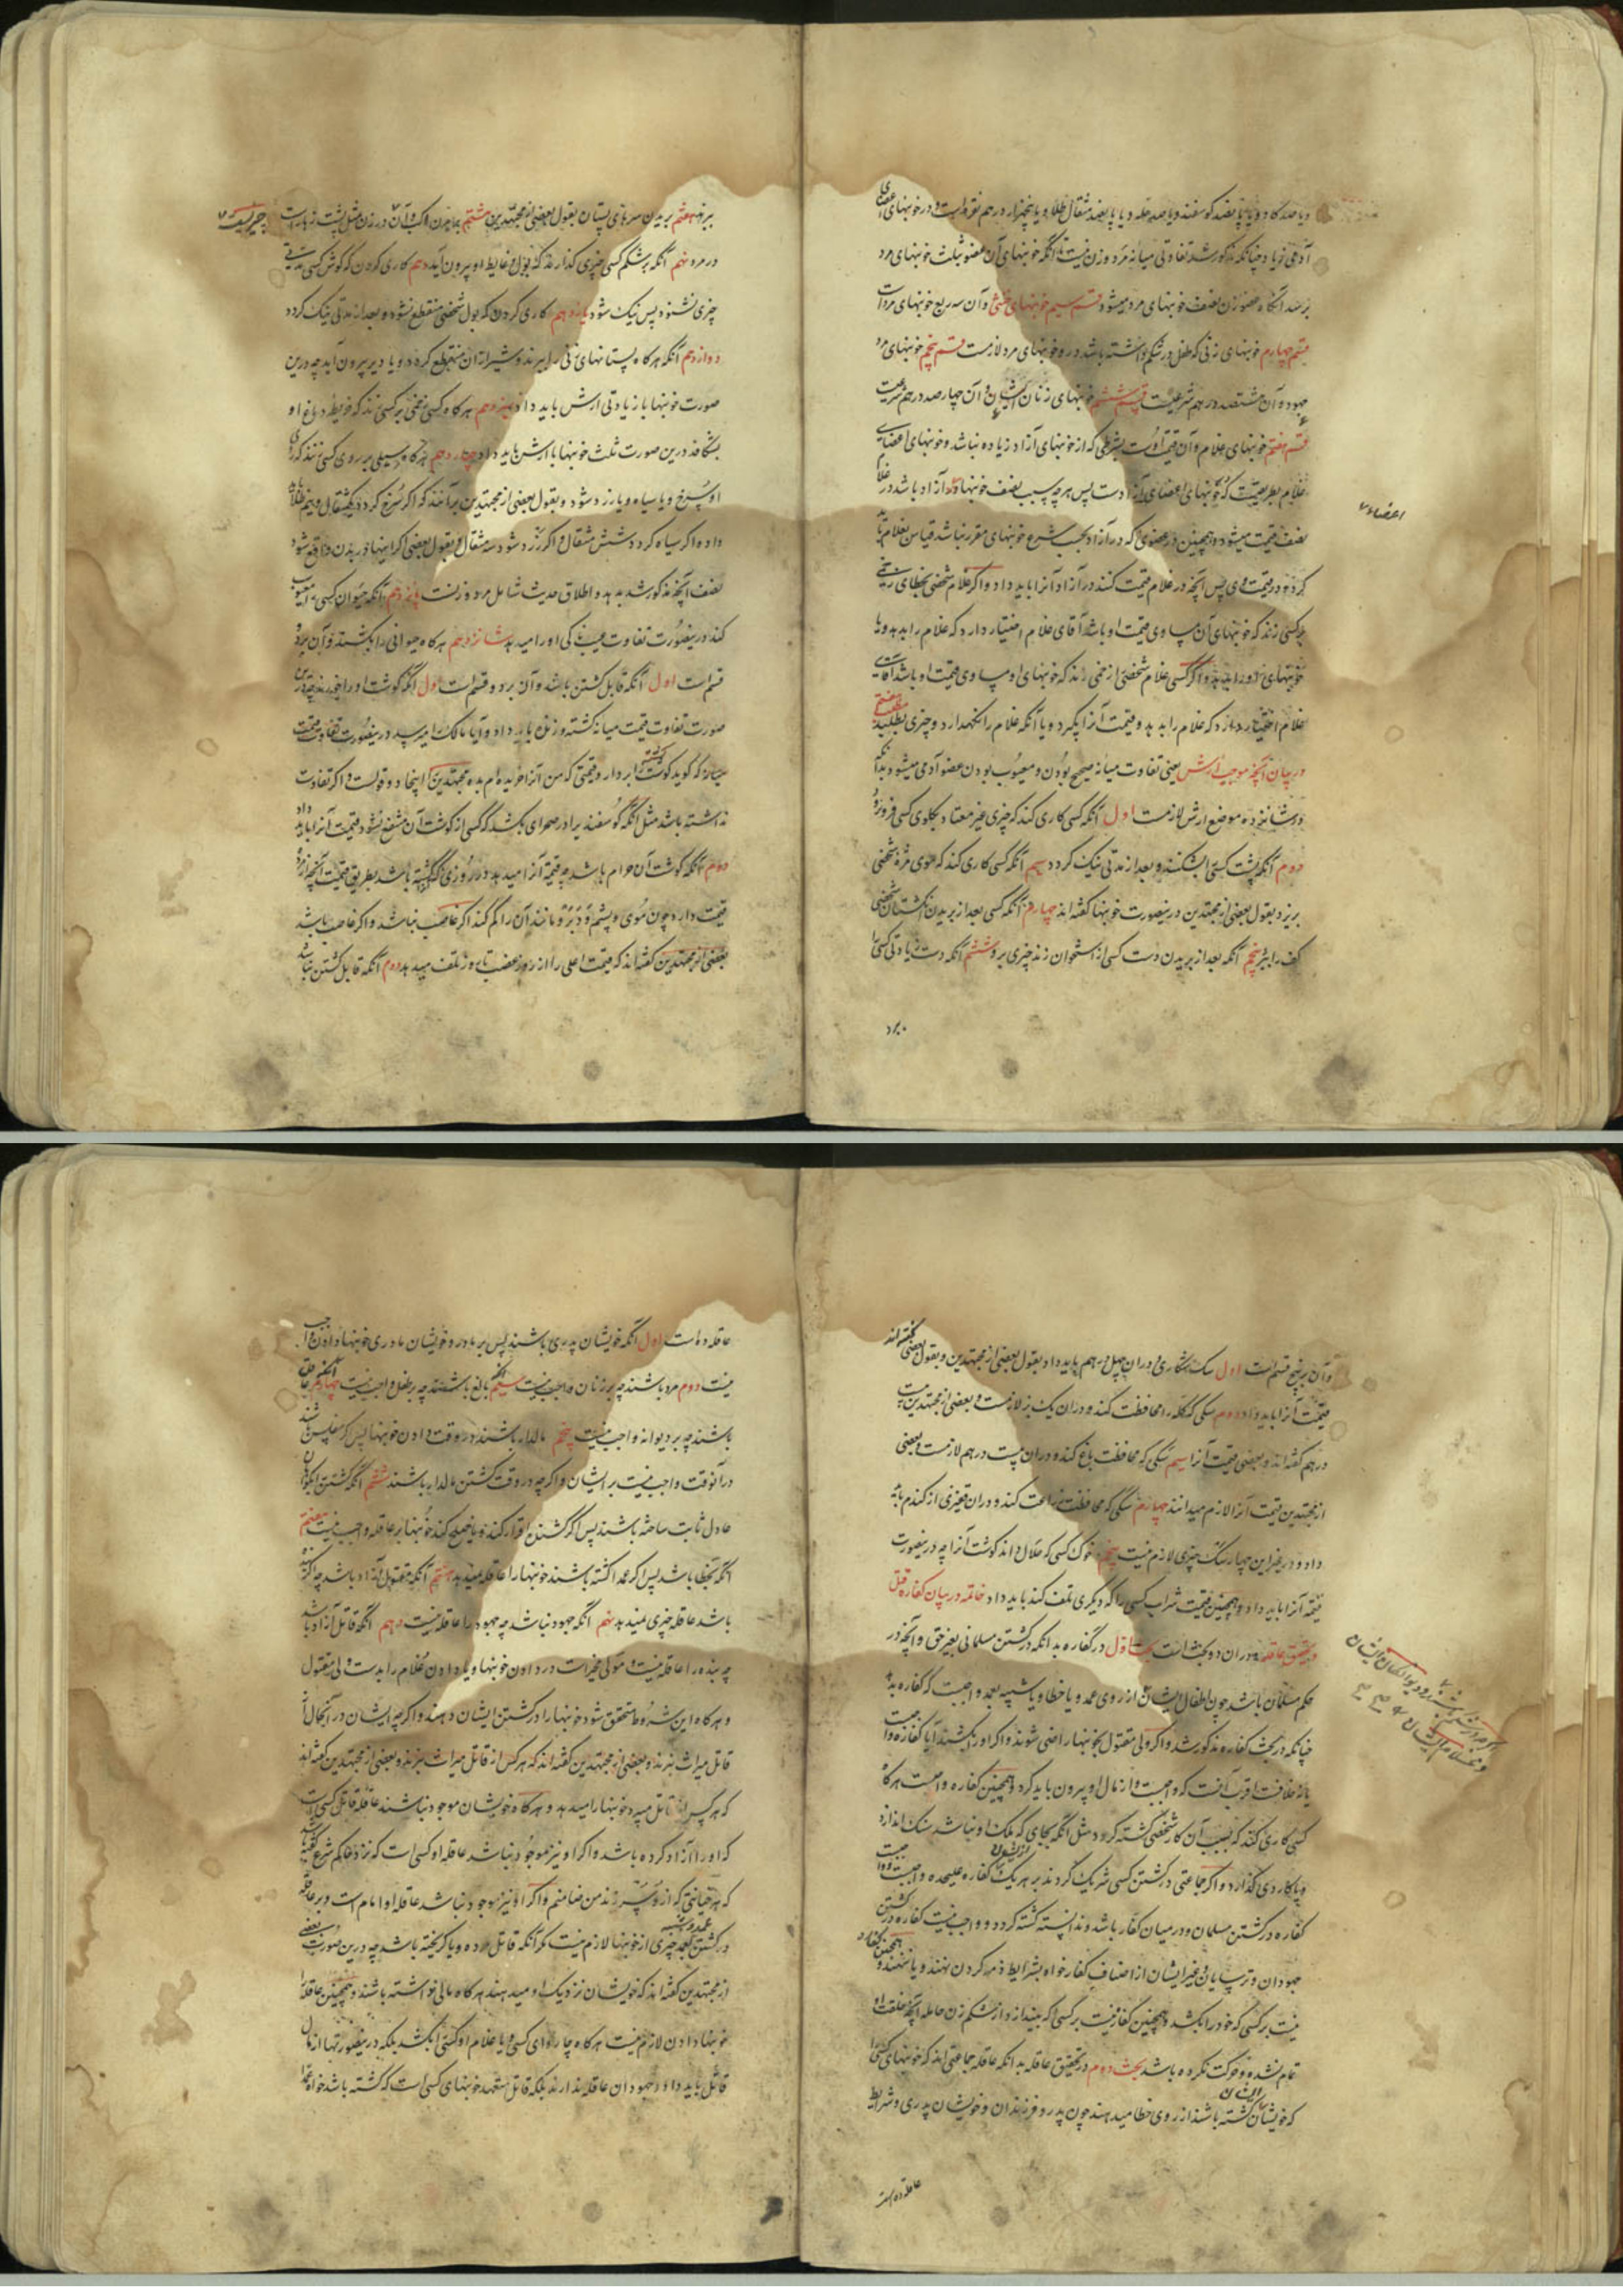 و یا صد کاو و یا پانصد کوسفند و یا صد حله و یا پانصد مثقال طلا و یا پنجهزار درهم نقره است و در خونبهای اعضای
آدمی زیاد چنانکه مذکور شد تفاوتی میانه مرد و زن نیست تا آنکه خونبهای آن عضو بثلث خونبهای مرد
برسد آنکاه عضو زن نصف خونبهای مرد میشود قسم سیم خونبهای خنثی و آن سه ربع خونبهای مرد است
قسم چهارم خونبهای زنی که طفل در شکم داشته باشد در و خونبهای مرد لازمست قسم پنجم خونبهای مرد
جهود و آن هشتصد درهم شرعیست قسم ششم خونبهای زنان ایشان و آن چهار صد درهم شرعیست
قسم هفتم خونبهای غلام و آن قیمت اوست بشرطی که از خونبهای آزاد زیاده نباشد و خونبهای اعضای
غلام بطریقیست که خونبهای اعضای آزادست پس هر چه سبب نصف خونبهای آزاد باشد در غلام
اعضاء
نصف قیمت میشود و همچنین در عضوی که در آزاد بحسب شرع خونبهای مقرر نباشد قیاس بغلام باید
کرد در قیمت وی پس آنچه در غلام قیمت کنند در آزاد آنرا باید داد و اکر غلام شخصی بخطای زخمی
بر کسی زند که خونبهای آن مساوی قیمت او باشد آقای غلام اختیار دارد که غلام را بدهد و یا
خونبهای او را بدهد و اکر کسی غلام شخصی را زخمی زند که خونبهای او مساوی قیمت او باشد آقای
غلام اختیار دارد که غلام را بدهد و قیمت آنرا بکیرد و یا آنکه غلام را نکهدارد و چیزی نطلبد
در بیان آنچه موجب ارش یعنی تفاوت میانه صحیح بودن و معیوب بودن عضو آدمی میشود بدانکه
در شانزده موضع ارش لازمست اول آنکه کسی کاری کند که چیزی غیر معتاد بکلوی کسی فرو رود
دوم آنکه پشت کسی را بشکنند و بعد از مدتی نیک کردد سیم آنکه کسی کاری کند که موی مژه شخصی
بریزد بقول بعضی از مجتهدین درینصورت خونبها کفته اند چهارم آنکه کسی بعد از بریدن انکشتان شخصی
کف را ببرد پنجم آنکه بعد از بریدن دست کسی از استخوان زند چیزی ببرد ششم آنکه دست زیادتی کسی را
ببرد
ببرد هفتم بریدن سرهای پستان بقول بعضی از مجتهدین هشتم
در مرد نهم آنکه بر شکم کسی چیزی کذارند که بول و غایط او بیرون آید دهم کاری کردن که کوش کسی مدتی
چیزی نشنود پس نیک شود یازدهم کاری کردن که بول شخصی منقطع نشود و بعد از مدتی نیک کردد
دوازدهم آنکه هرکاه پستانهای زنی را ببرند و شیر از آن منقطع کردد و یا دیر بیرون آید چه درین
صورت خونبها با زیادتی ارش باید داد سیزدهم هرکاه کسی زخمی بر کسی زند که خریطه دماغ او
بشکافد درین صورت ثلث خونبها با ارش باید داد چهاردهم هرکاه سیلی بر روی کسی زنند که روی
او سرخ و یا سیاه و یا زرد شود و بقول بعضی از مجتهدین برآنند که اکر سرخ کردد یکمثقال و نیم طلا باید
داد و اکر سیاه کردد شش مثقال و اکر زرد شود سه مثقال و بقول بعضی اکر اینها در بدن واقع شود
نصف آنچه مذکور شد بدهد و اطلاق حدیث شامل مرد و زنست پانزدهم آنکه حیوان کسی را معیوب
کند درینصورت تفاوت عیب کی او را میدهد شانزدهم هرکاه حیوانی را بکشند و آن بر دو
قسم است اول آنکه قابل کشتن باشد و آن بر دو قسم است اول آنکه کوشت او را خورند چه درین
صورت تفاوت قیمت میانه کشته و زنده باید داد و آیا مالک را میرسد درینصورت تفاوت قیمت
میانه که کوید کوشت را بردار و قیمتی که من آنرا خریده ام بده مجتهدین را اینجا دو قولست و اکر تفاوت
نداشته باشد مثل آنکه کوسفند را در صحرای بکشد که کسی از کوشت آن منتفع نشود قیمت آنرا باید داد
دوم آنکه کوشت آن حرام باشد چه قیمت آنرا میدهد در روزی که کشته باشد بطریق قیمت آنچه از مرده
قیمت دارد چون موی و پشم و وبر و مانند آن را کم کند اکر غاصب نباشد و اکر غاصب باشد
بعضی از مجتهدین کفته اند که قیمت اعلی را از روز غصب تا روز تلف میدهد دوم آنکه قابل کشتن نباشد
و آن بر پنج قسم است اول سک شکاری و در آن چهل درهم باید داد بقول بعضی از مجتهدین و بقول بعضی کفته اند
قیمت آنرا باید داد دوم سکی که کله را محافظت کند و در آن یک بز لازمست و بعضی از مجتهدین بیست
درهم کفته اند و بعضی قیمت آنرا سیم سکی که محافظت باغ کند و در آن بیست درهم لازمست و بعضی
از مجتهدین قیمت آنرا لازم میدانند چهارم سکی که محافظت زراعت کند و در آن قفیزی از کندم باید
داد و در غیر این چهار سک چیزی لازم نیست پنجم خوک کسی که حلال داند کوشت آنرا چه درینصورت
قیمت آنرا باید داد و همچنین قیمت شراب کسی را که دیکری تلف کند باید داد خاتمه در بیان کفاره قتل
و تحقیق عاقله و در آن دو بحث است بحث اول در کفاره بدانکه در کشتن مسلمانی بغیر حق و آنچه در
حکم مسلمان باشد چون اطفال ایشان از روی عمد و یا خطا و یا شبیه بعمد واجبست که کفاره بدهد
چنانکه در بحث کفاره مذکور شد و اکر ولی مقتول بخونبها راضی شوند و اکر او را بکشند آیا کفاره واجبست
یا نه خلافست اقرب آنست که واجبست و از مال او بیرون باید کرد و همچنین کفاره واجبست هرکاه
کسی کاری کند که بسبب آن کار شخصی کشته کردد مثل آنکه بجای که ملک او نباشد سنک اندازد
و یا کاردی کذارد و اکر جماعتی در کشتن کسی شریک کردند بر هر یک کفاره علیحده واجبست
کفاره در کشتن مسلمان و در میان کفار باشد و ندانسته کشته کردد و واجب نیست کفاره در کشتن
جهودان و ترسایان و غیر ایشان از اصناف کفار خواه بشرایط ذمه کردن نهند و یا ننهند و همچنین کفاره
نیست بر کسی که خود را بکشد و همچنین کفاره نیست بر کسی که بیندازد از شکم زن حامله آنچه خلقت او
تمام نشده و حرکت نکرده باشد بحث دوم در تحقیق عاقله بدانکه عاقله جماعتی اند که خونبهای کسی را
که خویشان ایشان کشته باشند از روی خطا میدهند چون پدر و فرزندان و خویشان پدری و شرایط
عاقله ده است
عاقله ده است اول آنکه خویشان پدری باشند پس بر مادر و خویشان مادری خونبها دادن واجب
نیست دوم مرد باشند چه بر زنان واجب نیست سیم آنکه بالغ باشند چه بر طفل واجب نیست چهارم آنکه عاقل
باشند چه بر دیوانه واجب نیست پنجم مالدار باشند در وقت دادن خونبها پس اکر مفلس باشند
در آنوقت واجب نیست بر ایشان و اکرچه در وقت کشتن مالدار باشند ششم آنکه کشتن بکواهان
عادل ثابت ساخته باشند پس اکر کشنده اقرار کند و یا صلح کند خونبها بر عاقله واجب نیست هفتم
آنکه بخطا باشد پس اکر عمدا کشته باشند خونبها را عاقله نمیدهد هشتم آنکه مقتول آزاد باشد چه اکر بنده
باشد عاقله چیزی نمیدهد نهم آنکه جهود نباشد چه جهود را عاقله نیست دهم آنکه قاتل آزاد باشد
چه بنده را عاقله نیست و مولی مخیر است در دادن خونبها و یا دادن غلام را بدست ولی مقتول
و هرکاه این شروط متحقق شود خونبها را در کشتن ایشان دهند و اکرچه ایشان در آنحال از
قاتل میراث نبرند و بعضی از مجتهدین کفته اند که هر کس از قاتل میراث میبرند و بعضی از مجتهدین کفته اند
که اورا آزاد کرده باشد و اکر او نیز موجود نباشد عاقله او کسی است که نزد حاکم شرع کفته باشد
که هر جنایتی که از تو سر زند من ضامنم و اکر او نیز موجود نباشد عاقله او امام است و بر عاقله
در کشتن بعمد چیزی از خونبها لازم نیست مکر آنکه قاتل مرده و یا کریخته باشد چه درین صورت بعضی
از مجتهدین کفته اند که خویشان نزدیک او میدهند هرکاه مالی نداشته باشند و همچنین عاقله را
خونبها دادن لازم نیست هرکاه چاروای کسی و یا غلام او کسی را بکشد بلکه درینصورتها از مال
قاتل باید داد و جهودان عاقله ندارند بلکه قاتل متعهد خونبهای کسی است که کشته باشد خواه عمدا